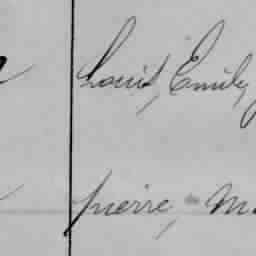 Louis, Emily,
pierre, M